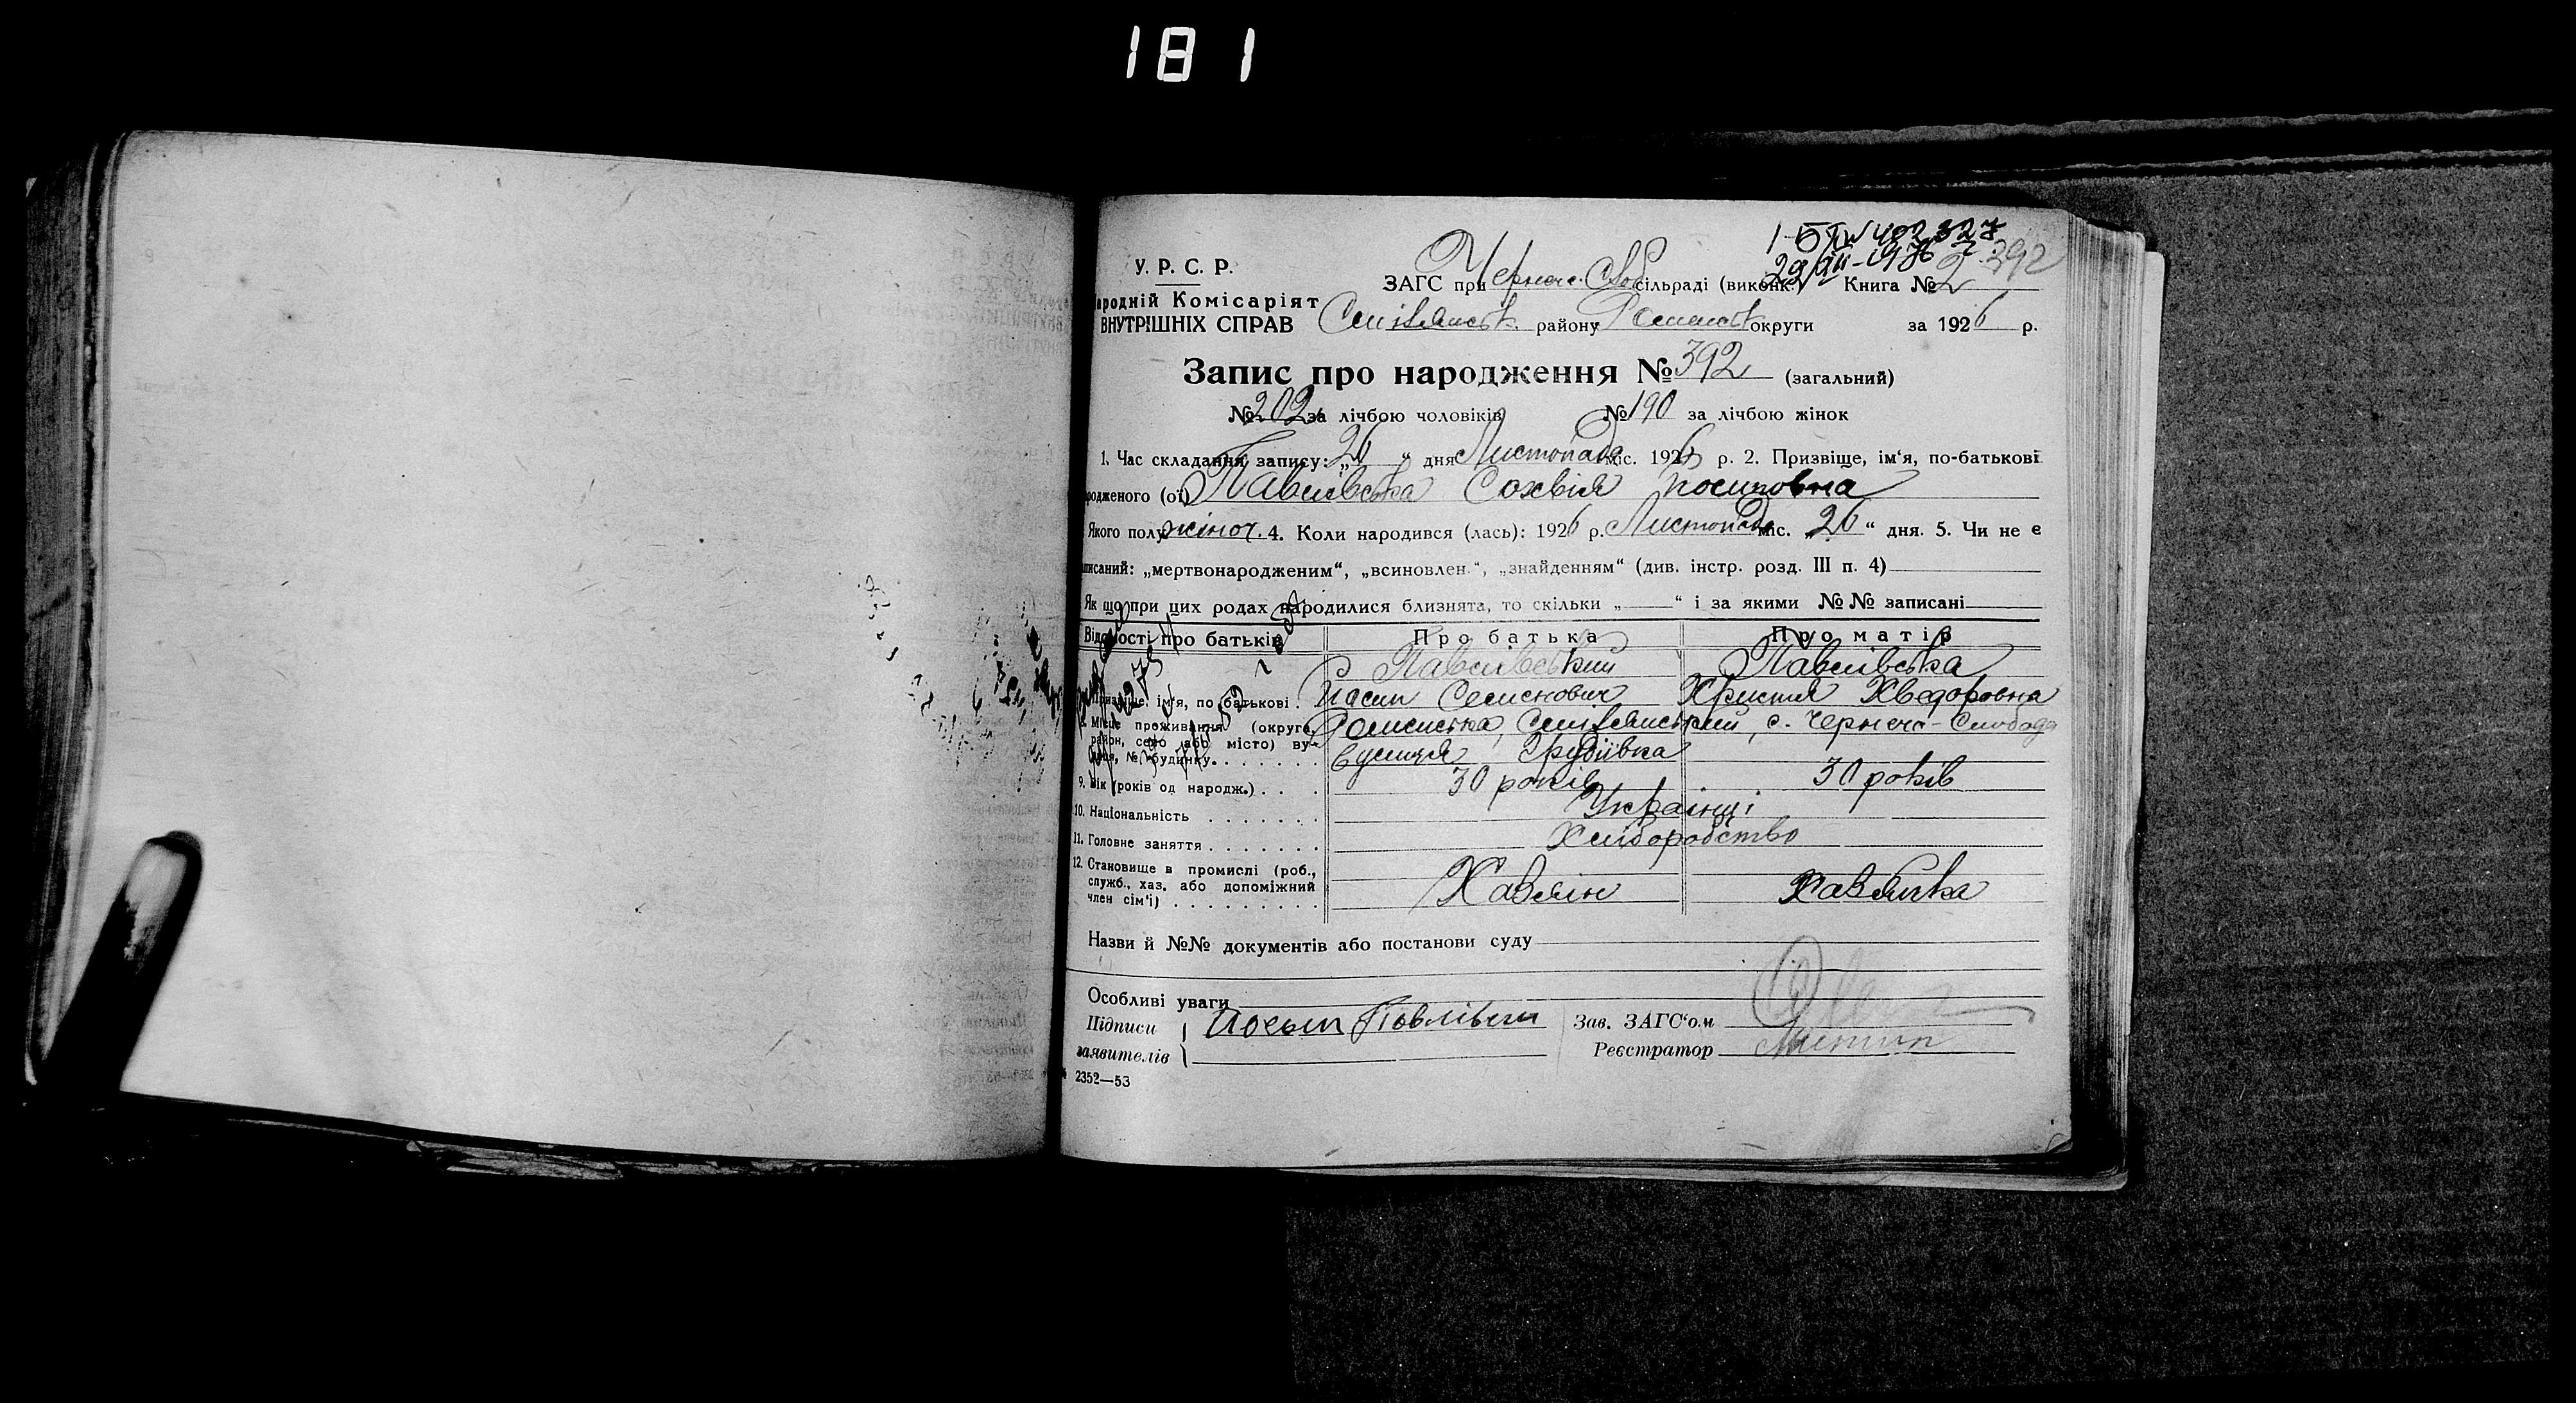 181
1-БП № 402327
29/VII-1976 г. 392
У. Р. С. Р.
ЗАГС при Чернеч. Слоб. сільраді (виконк.) Книга № 2
ародній Комісаріят
ВНУТРІШНІХ СПРАВ Смілянськ. району Роменськ округи за 1926 р.
Запис про народження № 392 (загальний)
№ 202 за лічбою чоловіків № 190 за лічбою жінок
1. Час складання запису: „26“ дня Листопада міс. 1926 р. 2. Призвіще, ім‘я, по-батькові
родженого (ої) Павлівська Сохвія Йосиповна
Якого полу жіноч. 4. Коли народився (лась): 1926 р. Листопада міс. „26“ дня. 5. Чи не є
писаний: „мертвонародженим“, „всиновлен.“, „знайденням“ (див. інстр. розд. III п. 4)
Як що при цих родах народилися близнята, то скільки „ “ і за якими №№ записані
Відомості про батьків Про батька Про матір
Павлівський Павлівська
Призвіще, ім‘я, по батькові. Йосип Семенович Христя Хведоровна
8. Місце проживання (округа, Роменська, Смілянський, с. Чернеча-Слобода
район, село або місто) ву-
лиця, № будинку. вулиця Грубіївка
9. Вік (років од народж.) 30 років 30 років
10. Національність Українці
11. Головне заняття Хліборобство
12. Становище в промислі (роб.,
служб., хаз. або допоміжний Хазяїн Хазяйка
член сім‘ї)
Назви й №№ документів або постанови суду
Особливі уваги
Підписи Йосып Павлівськ Зав. ЗАГС‘ом
заявителів Реєстратор
2352—53